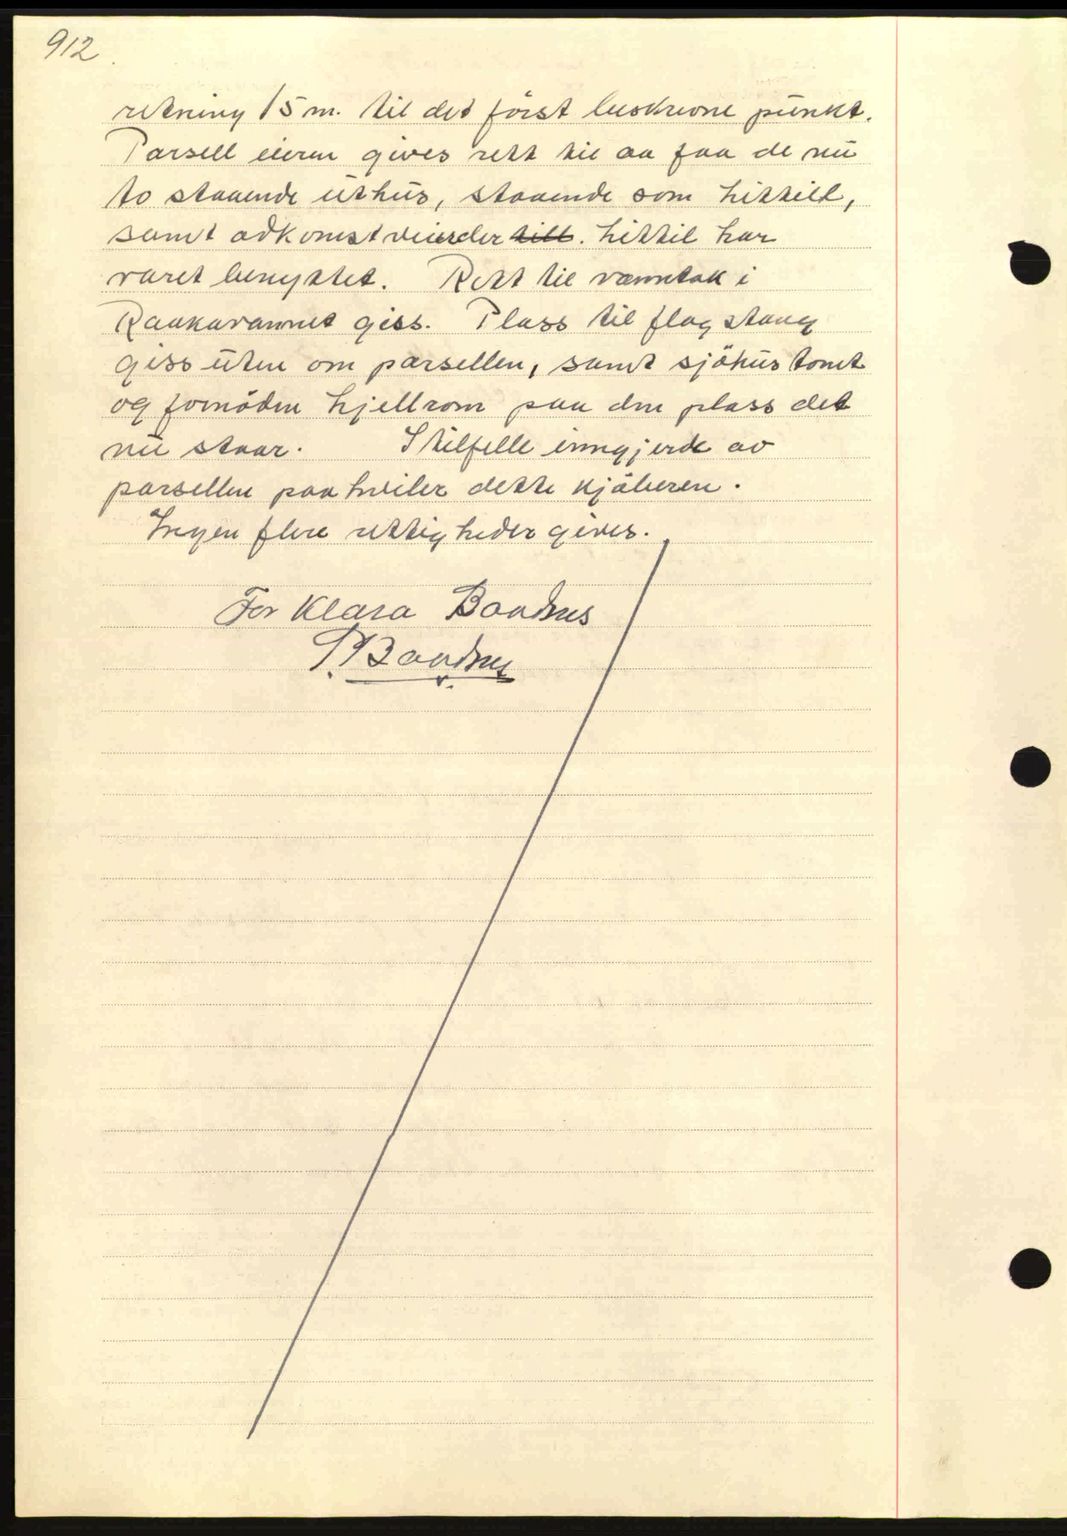 912
retning 15 m. til det först beskrevne punkt.
Parsell eieren gives rett til aa faa de nu
to staaende uthus, staaende som hittill,
samt adkomstveier der till. hittil har
været benyttet. Rett til vanntak i
Raakavannet giss. Plass til flag stang
giss uten om parsellen, samt sjöhus tomt
og fornöden hjellrom paa den plass det
nu staar. I tilfelle inngjerde av
parsellen paa hviler dette kjöberen.
Ingen flere rettigheder gives.
For Klara Baadsnes
P. Baadsnes